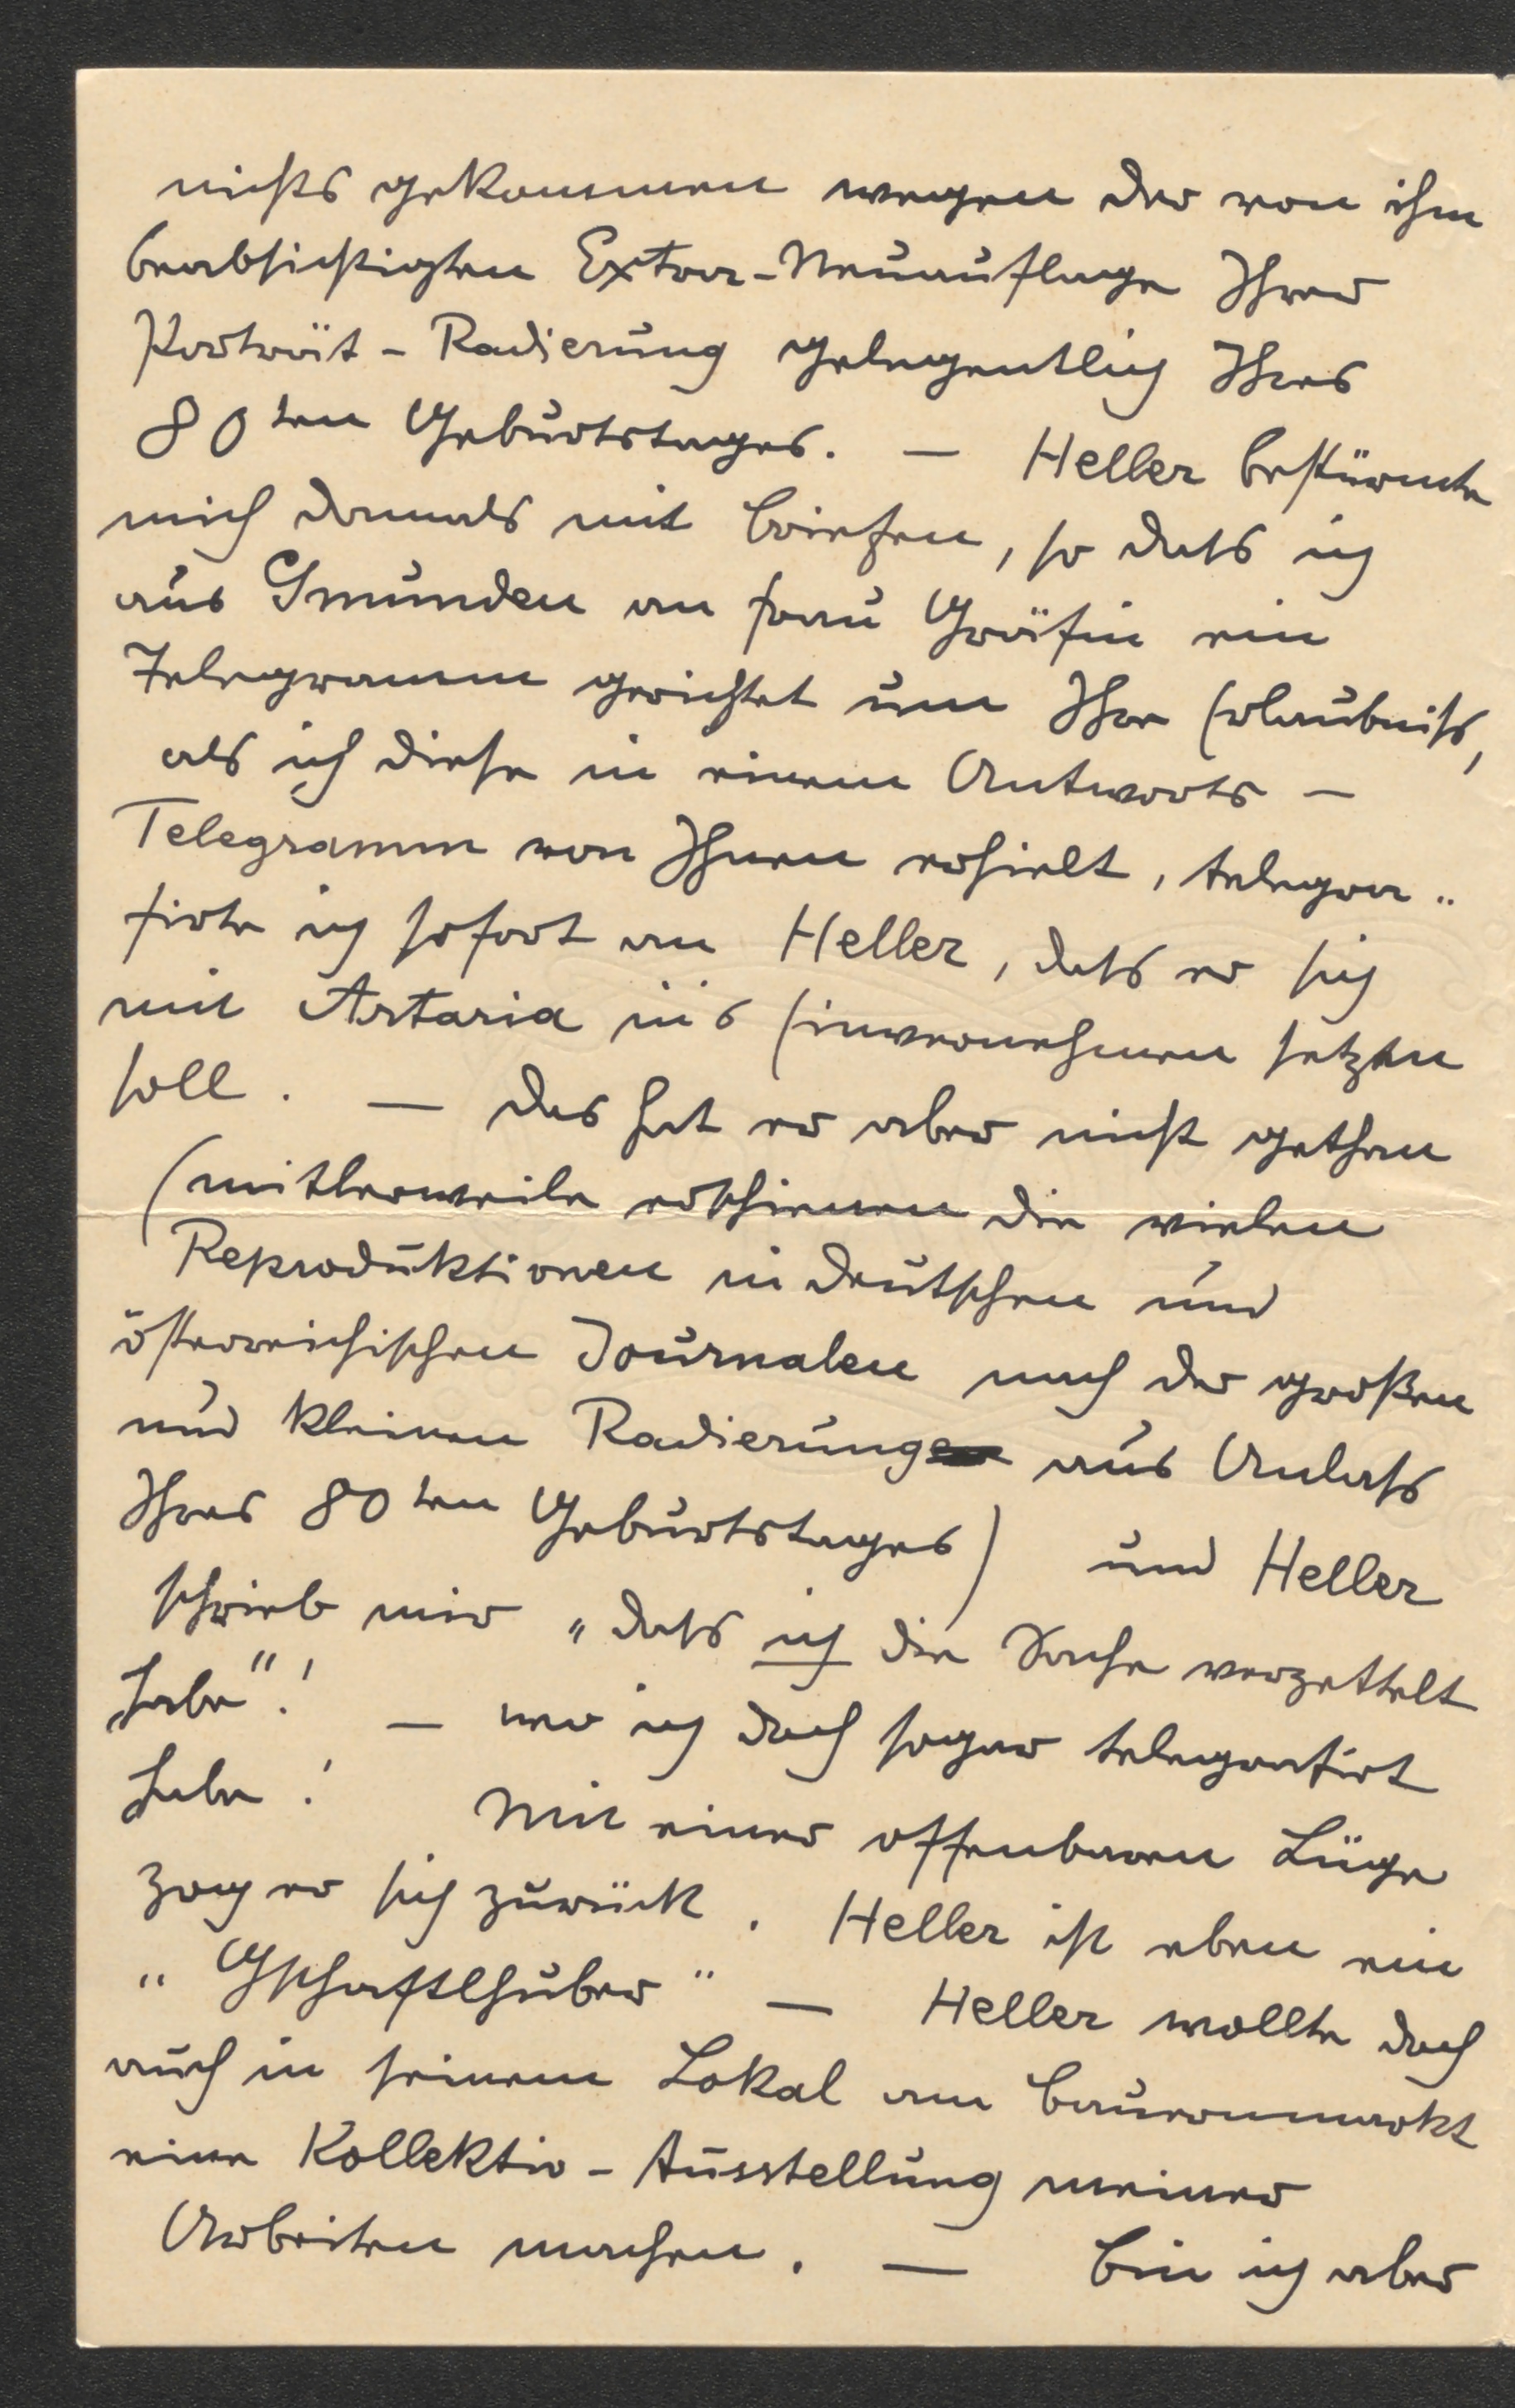 nichts gekommen wegen der von ihm
beabsichtigten Extra-Neuauflage Ihrer
Porträt-Radierung gelegentlich Ihres
80ten Geburtstages. — Heller bestürmte
mich damals mit Briefen, so dass ich
aus Gmunden an Frau Gräfin ein
Telegramm gerichtet um Ihre Erlaubniss,
als ich diese in einem Antworts-
Telegramm von Ihnen erhielt, telegra„
firte ich sofort an Heller, dass er sich
mit Artaria in's Einvernehmen setzen
soll. — Das hat er aber nicht gethan
(mitlerweile erschienen die vielen
Reproduktionen in deutschen und
österreichischen Journalen nach der großen
und kleinen Radierung aus Anlass
Ihres 80ten Geburtstages) und Heller
schrieb mir „dass ich die Sache verzettelt
habe"! — wo ich doch sogar telegrafirt
habe! Mit einer offenbaren Lüge
zog er sich zurück. Heller ist eben ein
„Gschaftlhuber" — Heller wollte doch
auch in seinem Lokal am Bauernmarkt
eine Kollektiv-Ausstellung meiner
Arbeiten machen. — Bin ich aber